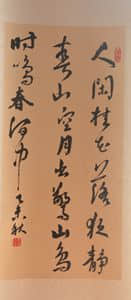 人闲桂花落夜静
春山空月出惊山鸟
时鸣春涧中乙未秋